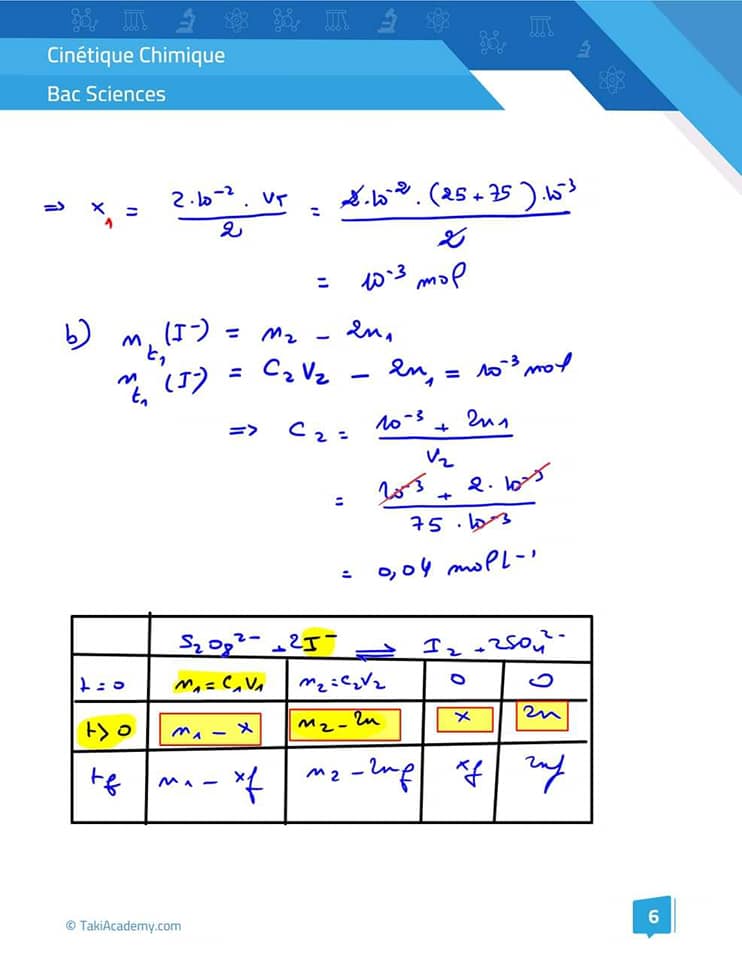 Cinétique Chimique
Bac Sciences
=> x₁ = 2.10⁻² . VT / 2 = 2.10⁻² . (25 + 75).10⁻³ / 2
= 10⁻³ mol
b) n t₁ (I⁻) = n₂ - 2x₁
n t₁ (I⁻) = C₂V₂ - 2x₁ = 10⁻³ mol
=> C₂ = 10⁻³ + 2x₁ / V₂
= 10⁻³ + 2.10⁻³ / 75 . 10⁻³
= 0,04 mol L⁻¹
S₂O₈²⁻ + 2I⁻ ⇌ I₂ + 2SO₄²⁻
t = 0 n₁ = C₁V₁ n₂ = C₂V₂ 0 0
t > 0 n₁ - x n₂ - 2x x 2x
tf n₁ - xf n₂ - 2xf xf 2xf
© TakiAcademy.com
6